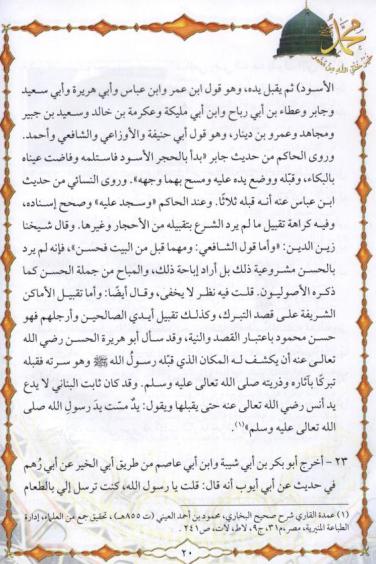 محمد
الأسود) ثم يقبل يده، وهو قول ابن عمر وابن عباس وأبي هريرة وأبي سعيد
وجابر وعطاء بن أبي رباح وابن أبي مليكة وعكرمة بن خالد وسعيد بن جبير
ومجاهد وعمرو بن دينار، وهو قول أبي حنيفة والأوزاعي والشافعي وأحمد.
وروى الحاكم من حديث جابر «بدأ بالحجر الأسود فاستلمه وفاضت عيناه
بالبكاء، وقبّله ووضع يده عليه ومسح بهما وجهه». وروى النسائي من حديث
ابن عباس عنه أنه قبله ثلاثًا. وعند الحاكم «وسجد عليه» وصحح إسناده،
وفيه كراهة تقبيل ما لم يرد الشرع بتقبيله من الأحجار وغيرها. وقال شيخنا
زين الدين: «وأما قول الشافعي: ومهما قبل من البيت فحسن»، فإنه لم يرد
بالحسن مشروعية ذلك بل أراد إباحة ذلك، والمباح من جملة الحسن كما
ذكره الأصوليون. قلت فيه نظر لا يخفى، وقال أيضًا: وأما تقبيل الأماكن
الشريفة على قصد التبرك، وكذلك تقبيل أيدي الصالحين وأرجلهم فهو
حسن محمود باعتبار القصد والنية، وقد سأل أبو هريرة الحسن رضي الله
تعالى عنه أن يكشف له المكان الذي قبّله رسولُ الله ﷺ وهو سرته فقبله
تبركًا بآثاره وذريته صلى الله تعالى عليه وسلم. وقد كان ثابت البناني لا يدع
يد أنس رضي الله تعالى عنه حتى يقبلها ويقول: يدٌ مسّت يدَ رسولِ الله صلى
الله تعالى عليه وسلم»(١).
٢٣ - أخرج أبو بكر بن أبي شيبة وابن أبي عاصم من طريق أبي الخير عن أبي رُهم
في حديث عن أبي أيوب أنه قال: قلت يا رسول الله، كنت ترسل إلي بالطعام
(١) عمدة القاري شرح صحيح البخاري، محمود بن أحمد العيني (ت ٨٥٥هـ)، تحقيق جمع من العلماء، إدارة
الطباعة المنيرية، مصر، م٣١، ج٩، لاط، لات، ص ٢٤١.
٢٠